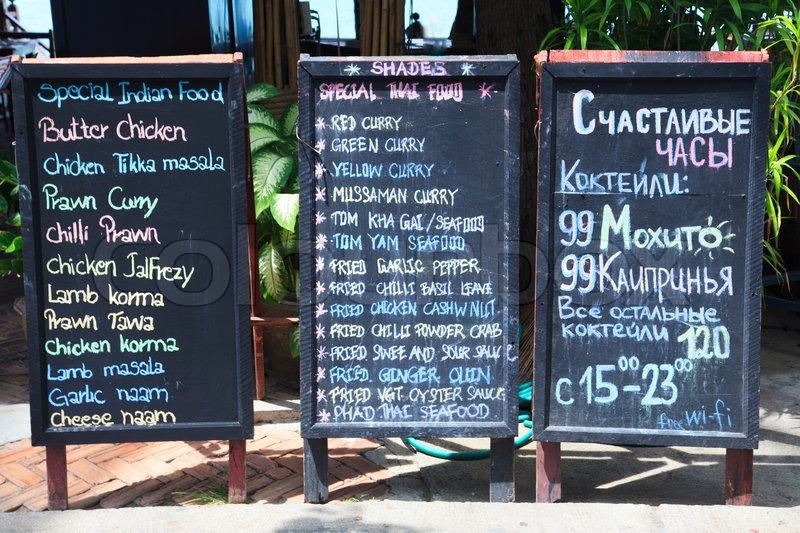 Special Indian Food
Butter Chicken
Chicken Tikka masala
Prawn Curry
chilli Prawn
Chicken Jalfrezy
Lamb korma
Prawn Tawa
Chicken korma
Lamb masala
Garlic naam
Cheese naam
SHADES
SPECIAL THAI FOOD
RED CURRY
GREEN CURRY
YELLOW CURRY
MUSSAMAN CURRY
TOM KHA GAI/SEAFOOD
TOM YAM SEAFOOD
FRIED GARLIC PEPPER
FRIED CHILLI BASIL LEAVE
FRIED CHICKEN CASHWNUT
FRIED CHILLI POWDER CRAB
FRIED SWEE AND SOUR SAUCE
FRIED GINGER
FRIED VGT OYSTER SAUCE
PHAD THAI SEAFOOD
Счастливые
часы
Коктейли:
99 Мохито
99 Каипринья
Все остальные
коктейли 120
с 15⁰⁰-23⁰⁰
free wi-fi